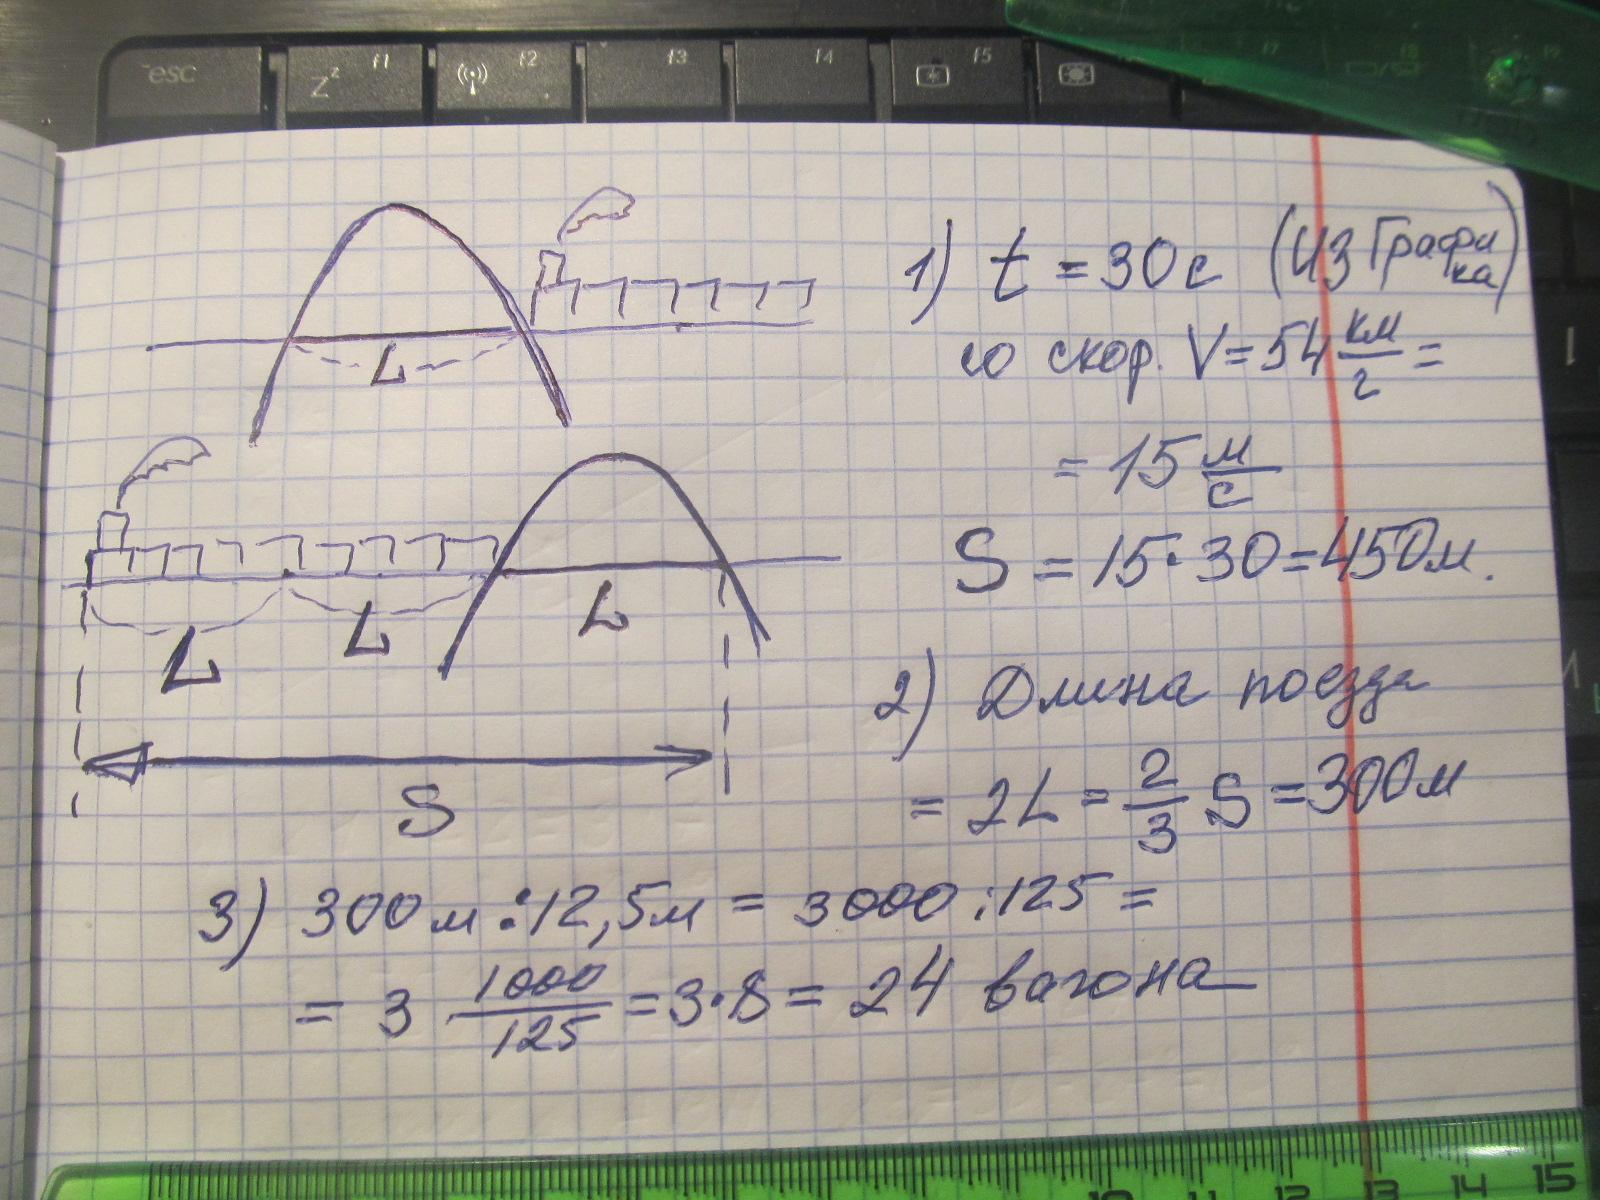 esc
Z² f1
f2
f3
f4
f5
L
L
L
L
S
1) t = 30 с (из графи
ка)
со скор. V = 54 км/г =
= 15 м/с
S = 15·30 = 450 м.
2) Длина поезда
= 2L = 2/3 S = 300 м
3) 300 м : 12,5 м = 3000 : 125 =
= 3 1000/125 = 3·8 = 24 вагона
10 11 12 13 14 15